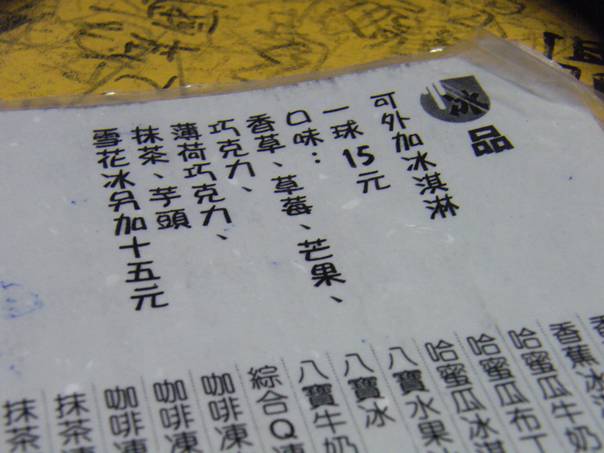 冰品
可外加冰淇淋
一球15元
口味：
香草、草莓、芒果、
巧克力、
薄荷巧克力、
抹茶、芋頭
雪花冰另加十五元
香蕉冰
哈蜜瓜牛奶
哈蜜瓜布丁
哈蜜瓜冰淇
八寶水果
八寶冰
八寶牛奶
綜合Q凍
咖啡凍
咖啡凍
咖啡凍
抹茶凍
抹茶